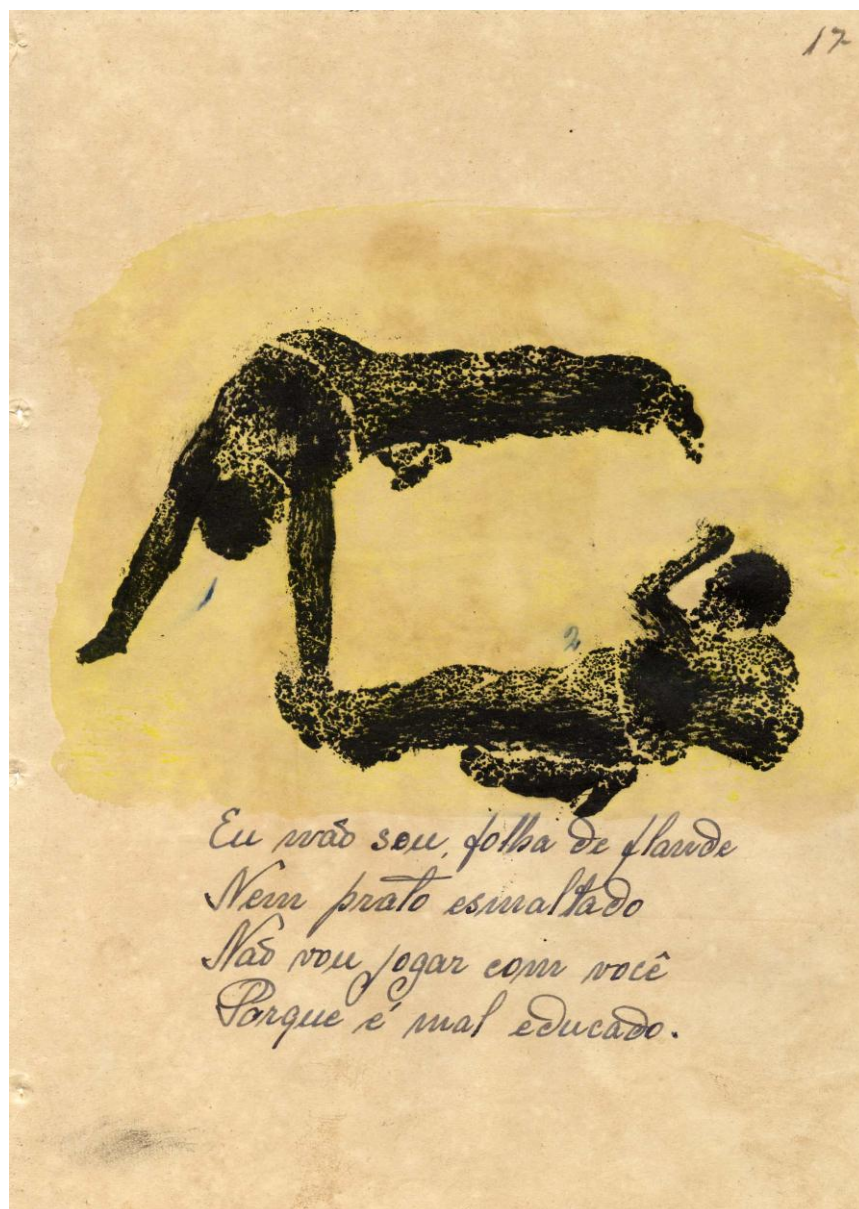 17
1
2
Eu não sou, folha de flande
Nem prato esmaltado
Não vou jogar com você
Porque é mal educado.